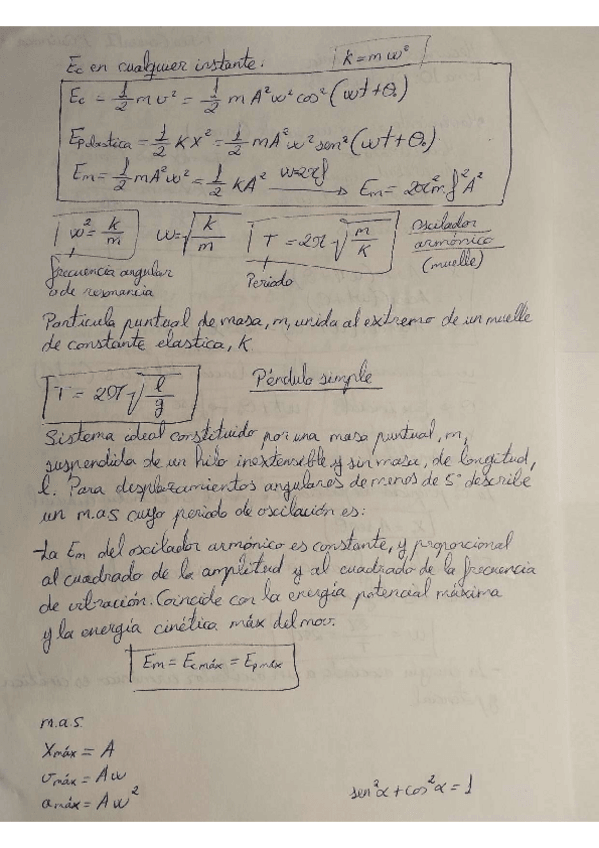 Ec en cualquier instante:
k = mω²
Ec = 1/2 mv² = 1/2 m A²ω² cos²(ωt+θ₀)
Ep elastica = 1/2 Kx² = 1/2 mA²ω² sen²(ωt+θ₀)
Em = 1/2 mA²ω² = 1/2 KA² ω=2πf → Em = 2π²m·f²A²
ω² = k/m ω = √(k/m) T = 2π √(m/K) Oscilador
armónico
(muelle)
frecuencia angular
o de resonancia
Periodo
Particula puntual de masa, m, unida al extremo de un muelle
de constante elastica, K
T = 2π √(l/g) Péndulo simple
Sistema ideal constituido por una masa puntual, m,
suspendida de un hilo inextensible y sin masa, de longitud,
l. Para desplazamientos angulares de menos de 5° describe
un m.a.s cuyo periodo de oscilación es:
-La Em del oscilador armónico es constante, y proporcional
al cuadrado de la amplitud y al cuadrado de la frecuencia
de vibración. Coincide con la energía potencial máxima
y la energía cinética máx del mov.
Em = Ec máx = Ep máx
m.a.s.
Xmáx = A
vmáx = Aω
amáx = Aω²
sen²α + cos²α = 1